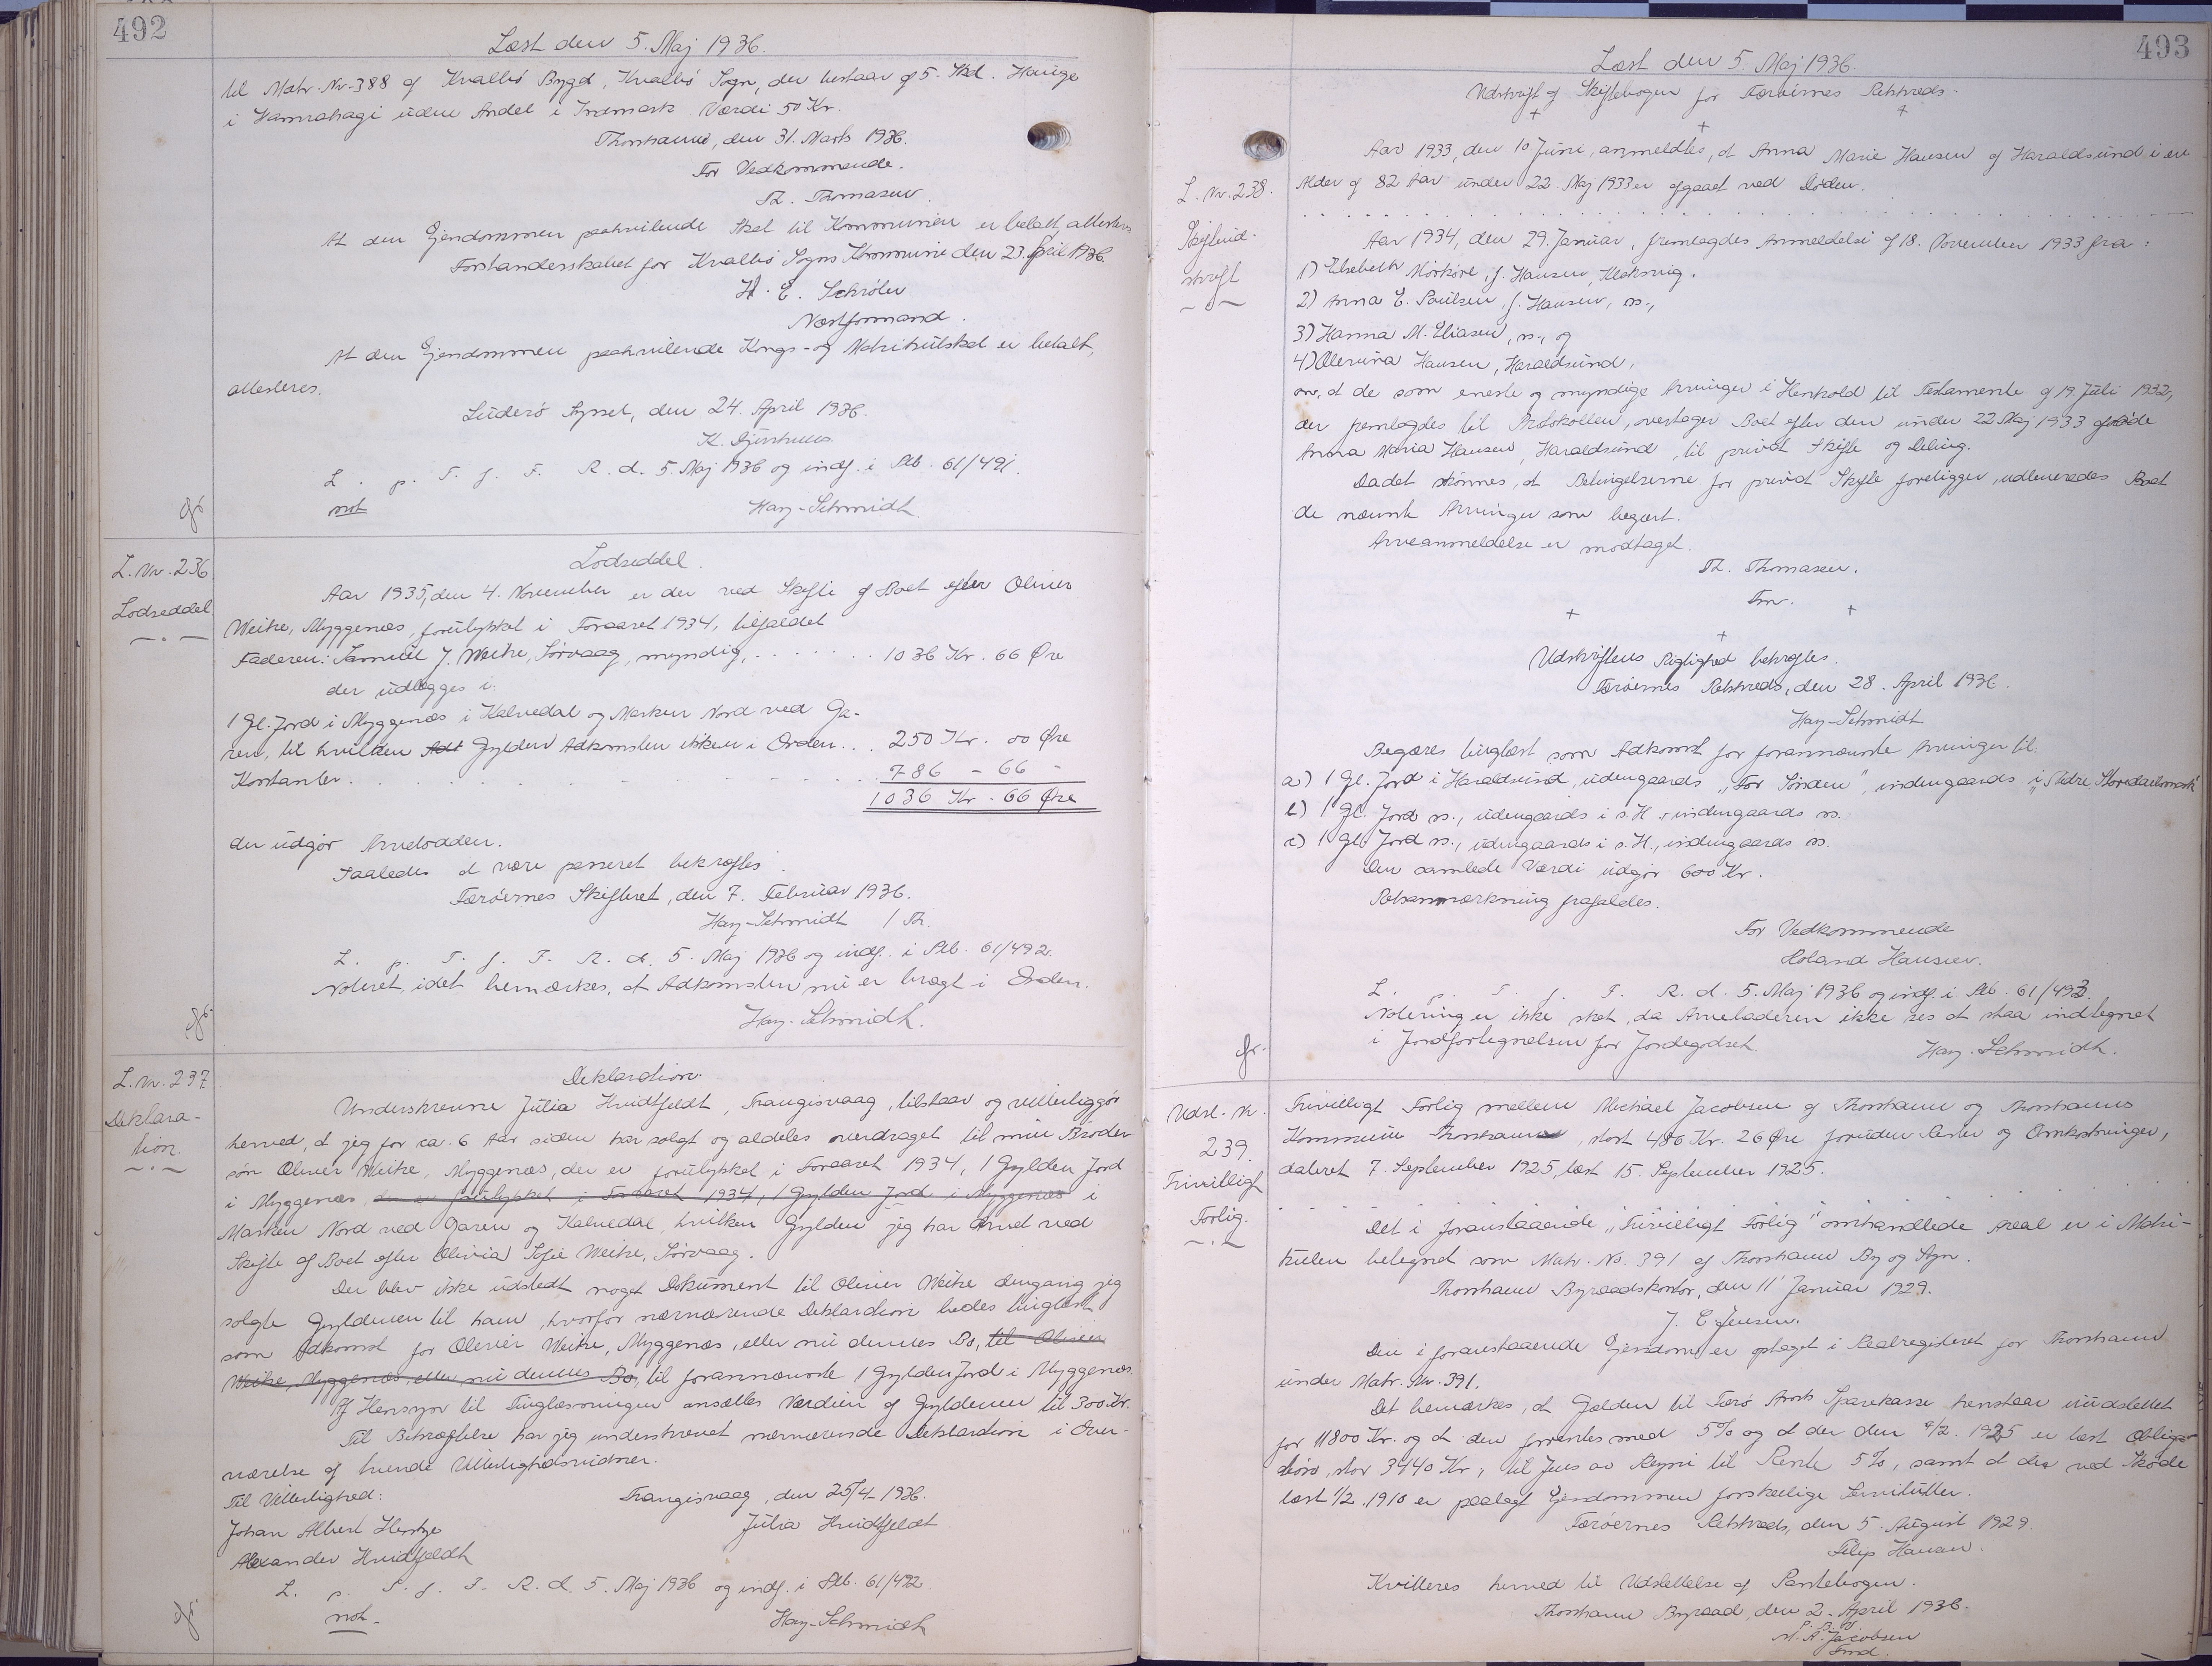 492
Læst den 5. Maj 1936.
til Matr. Nr. 388 af Kvalbø Bygd, Kvalbø Sogn, der bestaar af 5. Skd. Hauge
i Hamrahagi uden Andel i Indmark Værdi 50 Kr.
Thorshavn, den 31. Marts 1936.
For Vedkommende.
Th. Thomasen.
At den Ejendommen paahvilende Skat til Kommunen er betalt, attesteres
Forstanderskabet for Kvalbø Sogns Kommune den 23. April 1936.
H. E. Schrøter
Næstformand.
At den Ejendommen paahvilende Kongs- og Matrikulskat er betalt,
attesteres.
Suderø Syssel, den 24. April 1936.
K. Djurhuus
L. p. T. f. F. R. d. 5. Maj 1936 og indf. i Stb. 61/491.
not Hay-Schmidt
L. Nr. 236
Lodseddel
Lodseddel.
Aar 1935, den 4. November er der ved Skifte af Boet efter Oliver
Weihe, Myggenæs, forulykket i Foraaret 1934, tilfaldet
Faderen: Samuel J. Weihe, Sørvaag, myndig, . . . . . . . 1036 Kr. 66 Øre
der udlægges i:
1 Gl. Jord i Myggenæs i Kalvedal og Marken Nord ved Ga-
ren, til hvilken Adt Gylden Adkomsten ikken i Orden . . . 250 Kr. 00 Øre
Kontanter. . . . . . . . . 786 - 66 -
1036 Kr. 66 Øre
der udgør Arvelodden.
Saaledes at være passeret bekræftes.
Færøernes Skifteret, den 7. Februar 1936.
Hay-Schmidt / Th.
L. p. T. f. F. R. d. 5. Maj 1936 og indf. i Stb. 61/492.
Noteret, idet bemærkes, at Adkomsten nu er bragt i Orden.
Hay-Schmidt.
L. Nr. 237
Deklara-
tion.
Deklaration.
Underskrevne Julia Hvidtfeldt, Trangisvaag, tilstaar og vitterliggør
herved, at jeg for ca. 6 Aar siden har solgt og aldeles overdraget til min Broder
søn Oliver Weihe, Myggenæs, der er forulykket i Foraaret 1934, 1 Gylden Jord
i Myggenæs, der er forulykket i Foraaret 1934, 1 Gylden Jord i Myggenæs i
Marken Nord ved Garen og Kalvedal, hvilken Gylden jeg har Arvet ved
Skifte af Boet efter Olivia Sofie Weihe, Sørvaag.
Der blev ikke udstedt noget Dokument til Oliver Weihe dengang jeg
solgte Gyldenen til ham, hvorfor nærværende Deklaration bedes tinglæst
som Adkomst for Oliver Weihe, Myggenæs, eller nu dennes Bo, til Oliver
Weihe, Myggenæs, eller nu dennes Bo, til forannævnte 1 Gylden Jord i Myggenæs.
Af Hensyn til Tinglæsningen ansættes Værdien af Gyldenen til 300 Kr.
Til Bekræftelse har jeg underskrevet nærværende Deklaration i Over-
værelse af tvende Vitterlighedsvidner.
Til Vitterlighed: Trangisvaag, den 25/4-1936.
Johan Albert Hentze Julia Hvidtfeldt
Alexander Hvidtfeldt
L. p. T. f. F. R. d. 5. Maj 1936 og indf. i Stb. 61/492.
not. Hay-Schmidt
493
Læst den 5. Maj 1936.
Udskrift af Skiftebogen for Færøernes Retskreds.
L. Nr. 238.
Skifteud-
skrift
Aar 1933, den 10 Juni, anmeldtes, at Anna Marie Hansen af Haraldsund i en
Alder af 82 Aar under 22. Maj 1933 er afgaaet ved Døden.
Aar 1934, den 29. Januar, fremlagdes Anmeldelse af 18. November 1933 fra:
1) Elsebeth Mørkøre, f. Hansen, Klaksvig.
2) Anna E. Poulsen, f. Hansen, ss.,
3) Hanna M. Eliasen, ss., og
4) Olevina Hansen, Haraldsund,
om, at de som eneste og myndige Arvinger i Henhold til Testamente af 19. Juli 1932,
der fremlagdes til Protokollen, overtager Boet efter den under 22 Maj 1933 afdøde
Anna Maria Hansen, Haraldsund, til privat Skifte og Deling.
Da det skønnes, at Betingelserne for privat Skifte foreligger, udleveredes Boet
de nævnte Arvinger som begært.
Arveanmeldelse er modtaget.
Th. Thomasen.
Fm.
Udskriftens Rigtighed bekræftes.
Færøernes Retskreds, den 28. April 1936.
Hay-Schmidt
Begæres tinglæst som Adkomst for forannævnte Arvinger til:
a) 1 Gl. Jord i Haraldsund, udengaards "Før Sunden", indengaards i "Nedre Storedalsmark"
b) 1 Gl. Jord ss., udengaards i s. H., indengaards ss.
c) 1 Gl. Jord ss., udengaards i s. H., indengaards ss.
Den samlede Værdi udgør 600 Kr.
Retsanmærkning frafaldes.
For Vedkommende
Roland Hansen.
L. p. T. f. F. R. d. 5. Maj 1936 og indf. i Stb. 61/493.
Notering er ikke sket, da Arveladeren ikke ses at staa indtegnet
i Jordfortegnelsen for Jordegodset.
Hay-Schmidt.
Udsl. Nr.
239.
Frivilligt
Forlig.
Frivilligt Forlig mellem Michael Jacobsen af Thorshavn og Thorshavns
Kommune Thorshavn, stort 406 Kr. 26 Øre foruden Renter og Omkostninger,
dateret 7. September 1925, læst 15. September 1925.
Det i foranstaaende "Frivilligt Forlig" omhandlede Areal er i Matri-
kulen betegnet som Matr. No. 391 af Thorshavn By og Sogn.
Thorshavn Byraadskontor, den 11' Januar 1929.
J. C. Jensen.
Den i foranstaaende Ejendom er optaget i Realregisteret for Thorshavn
under Matr. Nr. 391.
Det bemærkes, at Gælden til Færø Amts Sparekasse henstaar uudslettet
for 11800 Kr. og at den forrentes med 5% og at der den 9/2. 1925 er læst Obliga-
tion, stor 3440 Kr., til Jens av Reyni til Rente 5%, samt at der ved Skøde
læst 1/2. 1910 er paalagt Ejendommen forskellige Servitutter.
Færøernes Retskreds, den 5. August 1929.
Filip Hansen.
Kvitteres herved til Udslettelse af Pantebogen.
Thorshavn Byraad, den 2. April 1936.
M. A. Jacobsen
Fmd.